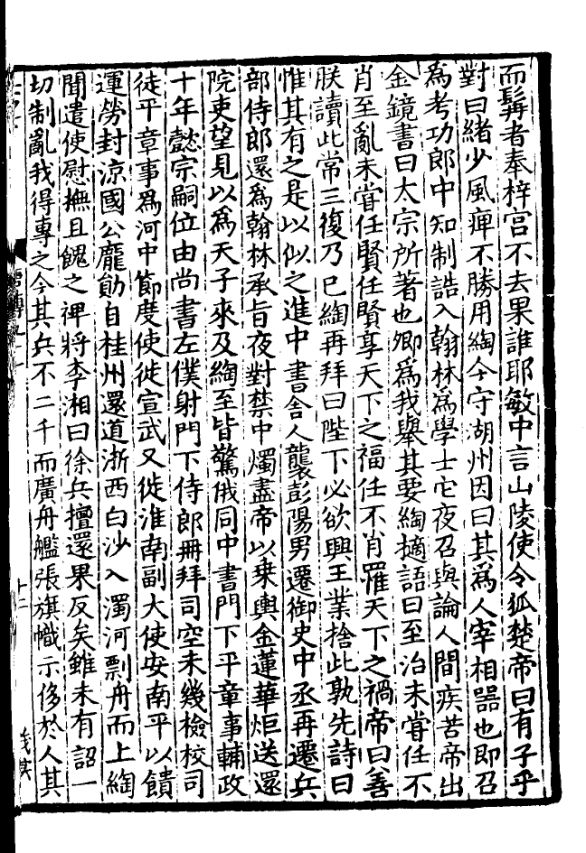 而髯者奉梓宫不去果誰耶敏中言山陵使令狐楚帝曰有子乎
對曰緒少風痺不勝用綯今守湖州因曰其爲人宰相器也即召
爲考功郎中知制誥入翰林爲學士它夜召與論人間疾苦帝出
金鏡書曰太宗所著也卿爲我舉其要綯擿語曰至治未嘗任不
肖至亂未嘗任賢任賢享天下之福任不肖罹天下之禍帝曰善
朕讀此常三復乃已綯再拜曰陛下必欲興王業捨此孰先詩曰
惟其有之是以似之進中書舍人襲彭陽男遷御史中丞再遷兵
部侍郎還爲翰林承旨夜對禁中燭盡帝以乗輿金蓮華炬送還
院吏望見以爲天子來及綯至皆驚俄同中書門下平章事輔政
十年懿宗嗣位由尚書左僕射門下侍郎冊拜司空未幾檢校司
徒平章事爲河中節度使徙宣武又徙淮南副大使安南平以饋
運勞封涼國公龐勛自桂州還道浙西白沙入濁河剽舟而上綯
聞遣使慰撫且餽之裨將李湘曰徐兵擅還果反矣雖未有詔一
切制亂我得專之今其兵不二千而廣舟艦張旗幟示侈於人其
十二